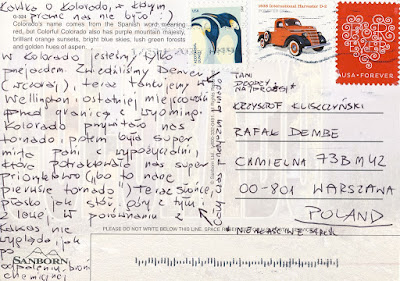 Kartka o Kolorado, z którym
prawie nas nie było
G-324
Colorado's name comes from the Spanish word meaning
red, but Colorful Colorado also has purple mountain majesty,
brilliant orange sunsets, bright blue skies, lush green forests
and golden hues of aspen.
W Kolorado jesteśmy tylko
przejazdem. Zwiedziliśmy Denver
(wczoraj), teraz tankujemy w
Wellington ostatniej miejscowości
przed granicą z Wyoming.
Kolorado przywitało nas
tornado, potem była super
miła pani z wypożyczalni,
która potraktowała nas super
priorytetowo (bo to nasze
pierwsze tornado") teraz słońce,
płasko jak stół, góry z tyłu i
z lewej. W porównaniu z
Kansas nie
wygląda jak
po
odpaleniu broni
chemicznej
SANBORN
USA
1938 International Harvester D-2
USA · FOREVER
TAM
DOPŁYŃ
KRZYSZTOF KLISZCZYŃSKI
RAFAŁ DEMBE
CHMIELNA 73B M 42
00-801 WARSZAWA
POLAND
PLEASE DO NOT WRITE BELOW THIS LINE. SPACE